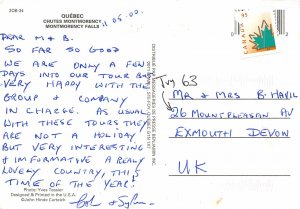 ZOB-34
QUÉBEC
CHUTES MONTMORENCY
MONTMORENCY FALLS
11.05.00.
DEAR M & B.
SO FAR SO GOOD
WE ARE ONLY A FEW
DAYS INTO OUR TOUR BUT
VERY HAPPY WITH THE
GROUP & COMPANY
IN CHARGE. AS USUAL
WITH THESE TOURS THEY
ARE NOT A HOLIDAY
BUT VERY INTERESTING
& INFORMATIVE A REALLY
LOVELY COUNTRY, THIS
TIME OF THE YEAR!
Photo: Yves Tessier
Designed & Printed in the U.S.A.
©John Hinde Curteich
CANADA
95
63
MR & MRS B. HAVIL
26 MOUNTPLEASANT AV
EXMOUTH DEVON
UK